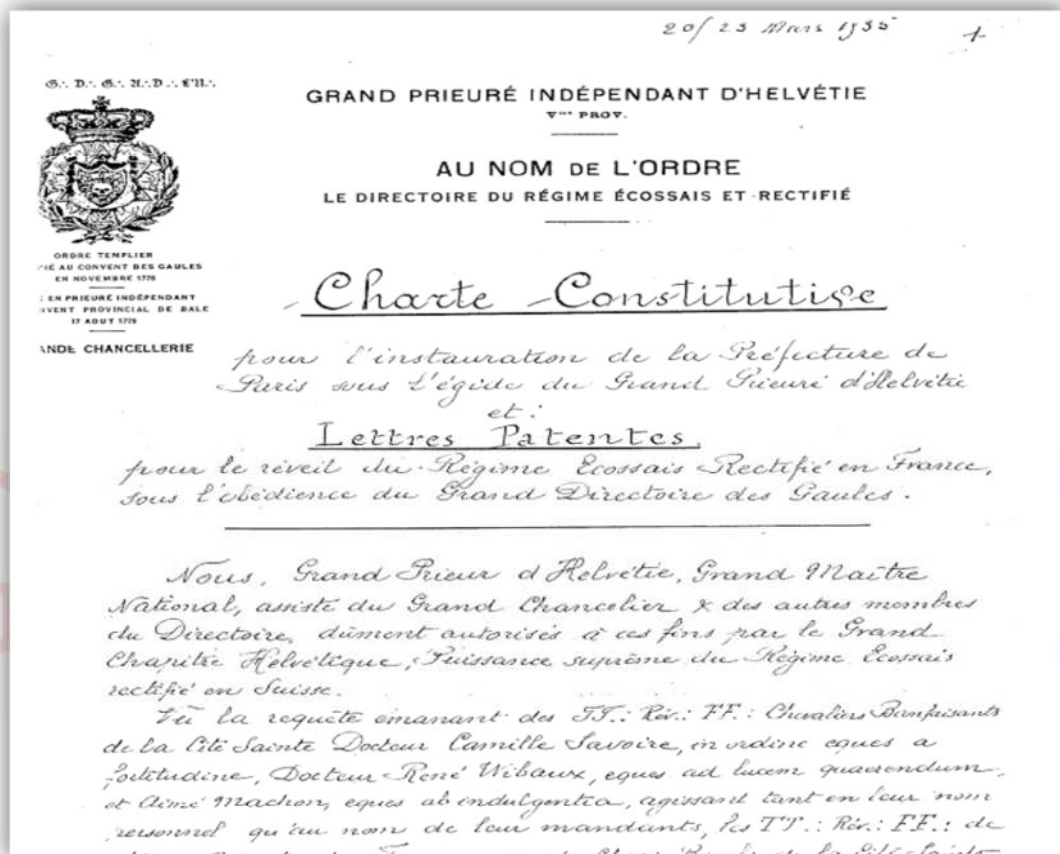 20/23 Mars 1935
G∴ D∴ G∴ A∴ D∴ L'U∴
GRAND PRIEURÉ INDÉPENDANT D'HELVÉTIE
Vme PROV.
AU NOM DE L'ORDRE
LE DIRECTOIRE DU RÉGIME ÉCOSSAIS ET RECTIFIÉ
ORDRE TEMPLIER
IÉ AU CONVENT DES GAULES
EN NOVEMBRE 1778
EN PRIEURÉ INDÉPENDANT
VENT PROVINCIAL DE BALE
17 AOUT 1779
ANDE CHANCELLERIE
Charte Constitutive
pour l'instauration de la Préfecture de
Paris sous l'égide du Grand Prieuré d'Helvétie
et :
Lettres Patentes,
pour le réveil du Régime Ecossais Rectifié en France,
sous l'obédience du Grand Directoire des Gaules.
Nous, Grand Prieur d'Helvétie, Grand Maître
National, assisté du Grand Chancelier & des autres membres
du Directoire, dûment autorisés à ces fins par le Grand
Chapitre Helvétique, Puissance suprême du Régime Ecossais
rectifié en Suisse.
Vu la requête émanant des TT.: Rév.: FF.: Chevaliers Bienfaisants
de la Cité Sainte Docteur Camille Savoire, in ordine eques a
fortitudine, Docteur René Wibaux, eques ad lucem quaerendum,
et Aimé Machon, eques ab indulgentia, agissant tant en leur nom
personnel qu'au nom de leur mandants, les TT.: Rév.: FF.: de